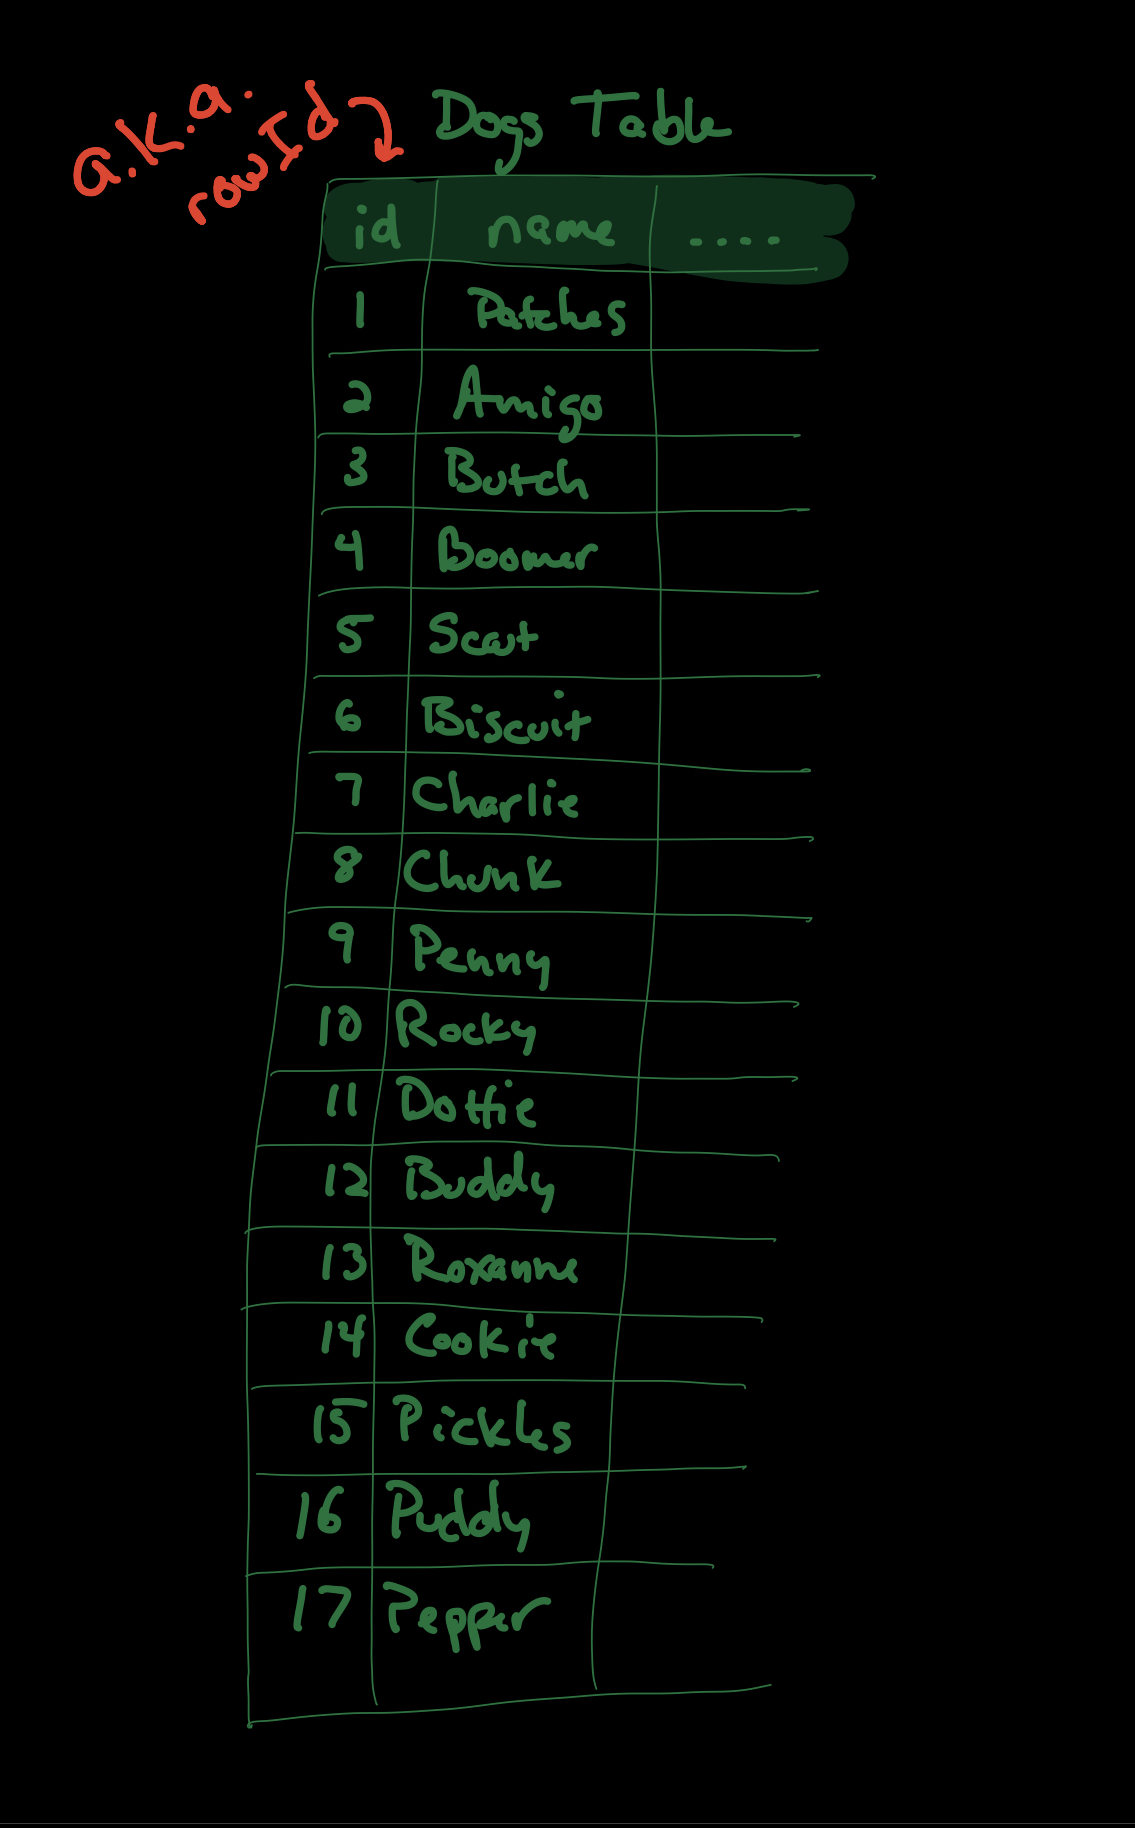 a.k.a.
rowId
Dogs Table
id name ....
1 Patches
2 Amigo
3 Butch
4 Boomer
5 Scout
6 Biscuit
7 Charlie
8 Chunk
9 Penny
10 Rocky
11 Dottie
12 Buddy
13 Roxanne
14 Cookie
15 Pickles
16 Puddy
17 Pepper